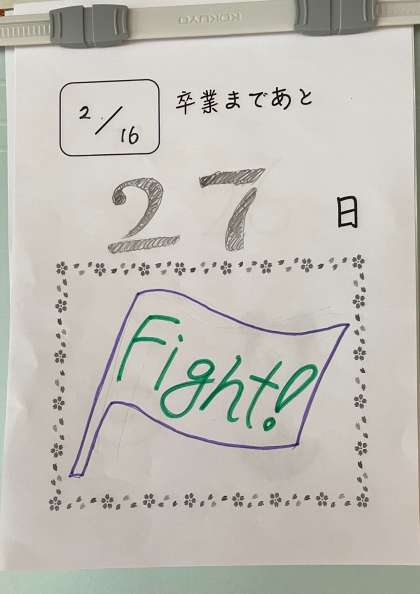 KOKUYO
2/16
卒業まであと
27
日
Fight!